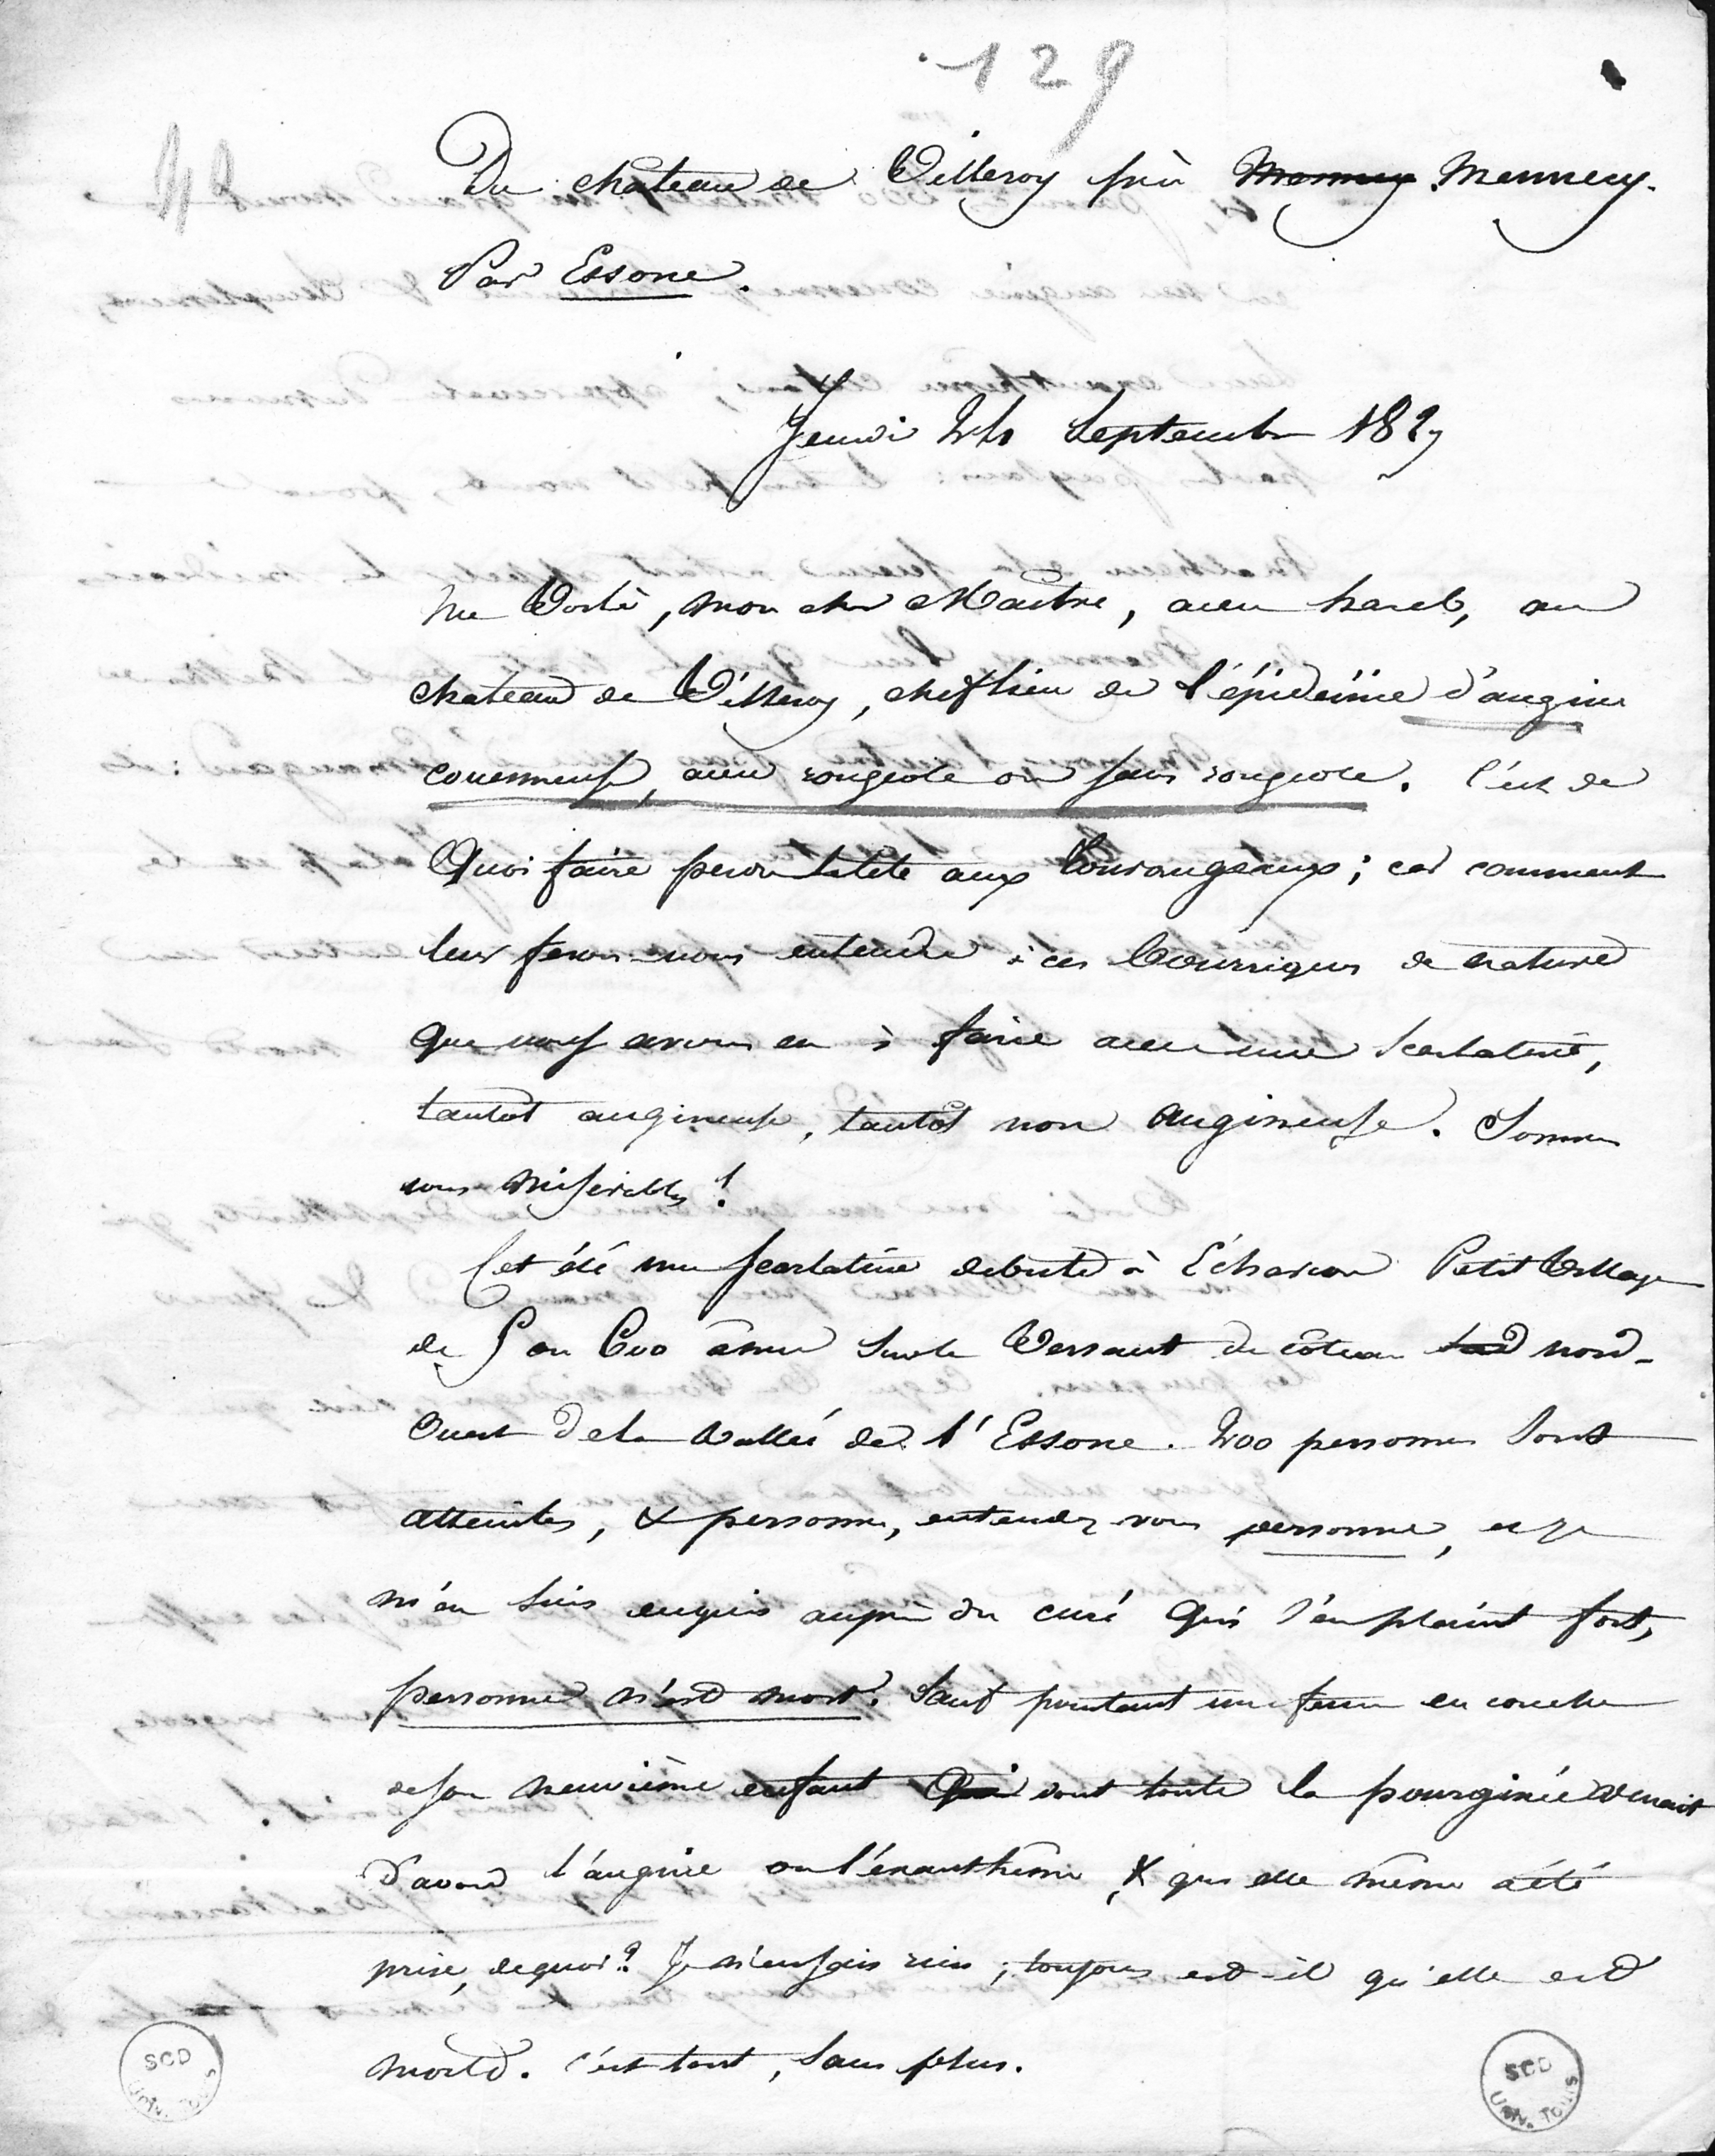 129
Du chateau de Villeroy près Mennecy Mennecy.
Par Essone.
Jeudi 24 Septembre 1829
Me Voilà, mon cher Maitre, avec hareb, au
chateau de Villeroy, cheflieu de l'épidémie d'angine
couenneuse, avec rougeole ou sans rougeole. C'est de
Quoi faire perdre la tete aux Tourangeaux ; car comment
leur ferons-nous entendre à ces bourriques de nature
que nous avons eu à faire avec une Scarlatine,
tantôt angineuse, tantôt non angineuse. Sommes
nous miserables !
Cet été une Scarlatine debute à Echarcon Petit Village
de 5 ou 600 âmes Sur le Versant du côteau sud nord-
Ouest de la Vallée de l'Essone. 200 personnes sont
atteintes, & personne, entendez vous personne, et je
m'en suis enquis auprès du curé qui s'en plaint fort,
personne n'est mort. Sauf pourtant une femme en couche
de son neuvième enfant Qui dont toute la pourginée venait
d'avoir l'angine ou l'exanthème, & qui elle même a été
prise, de quoi ? Je n'en sais rien ; toujours est-il qu'elle est
morte. C'est tout, sans plus.
SCD UNIV. TOURS
SCD UNIV. TOURS